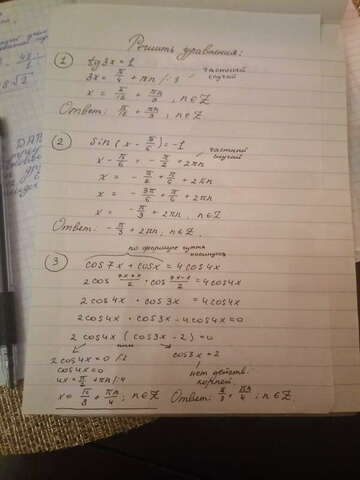 Решить уравнения:
① tg3x = 1
3x = π/4 + πn /:3 частный случай
x = π/12 + πn/3 ; n∈Z
Ответ: π/12 + πn/3 ; n∈Z
② sin(x - π/6) = -1
x - π/6 = - π/2 + 2πn частный случай
x = - π/2 + π/6 + 2πn
x = - 3π/6 + π/6 + 2πn
x = - π/3 + 2πn, n∈Z
Ответ: - π/3 + 2πn; n∈Z.
③ по формуле суммы косинусов
cos7x + cosx = 4cos4x
2cos (7x+x)/2 · cos (7x-x)/2 = 4cos4x
2cos4x · cos3x = 4cos4x
2cos4x · cos3x - 4cos4x = 0
2cos4x (cos3x - 2) = 0
или
2cos4x = 0 /:2 cos3x = 2
cos4x = 0
4x = π/2 + πn /:4 нет действ. корней.
x = π/8 + πn/4 ; n∈Z Ответ: π/8 + πn/4 ; n∈Z